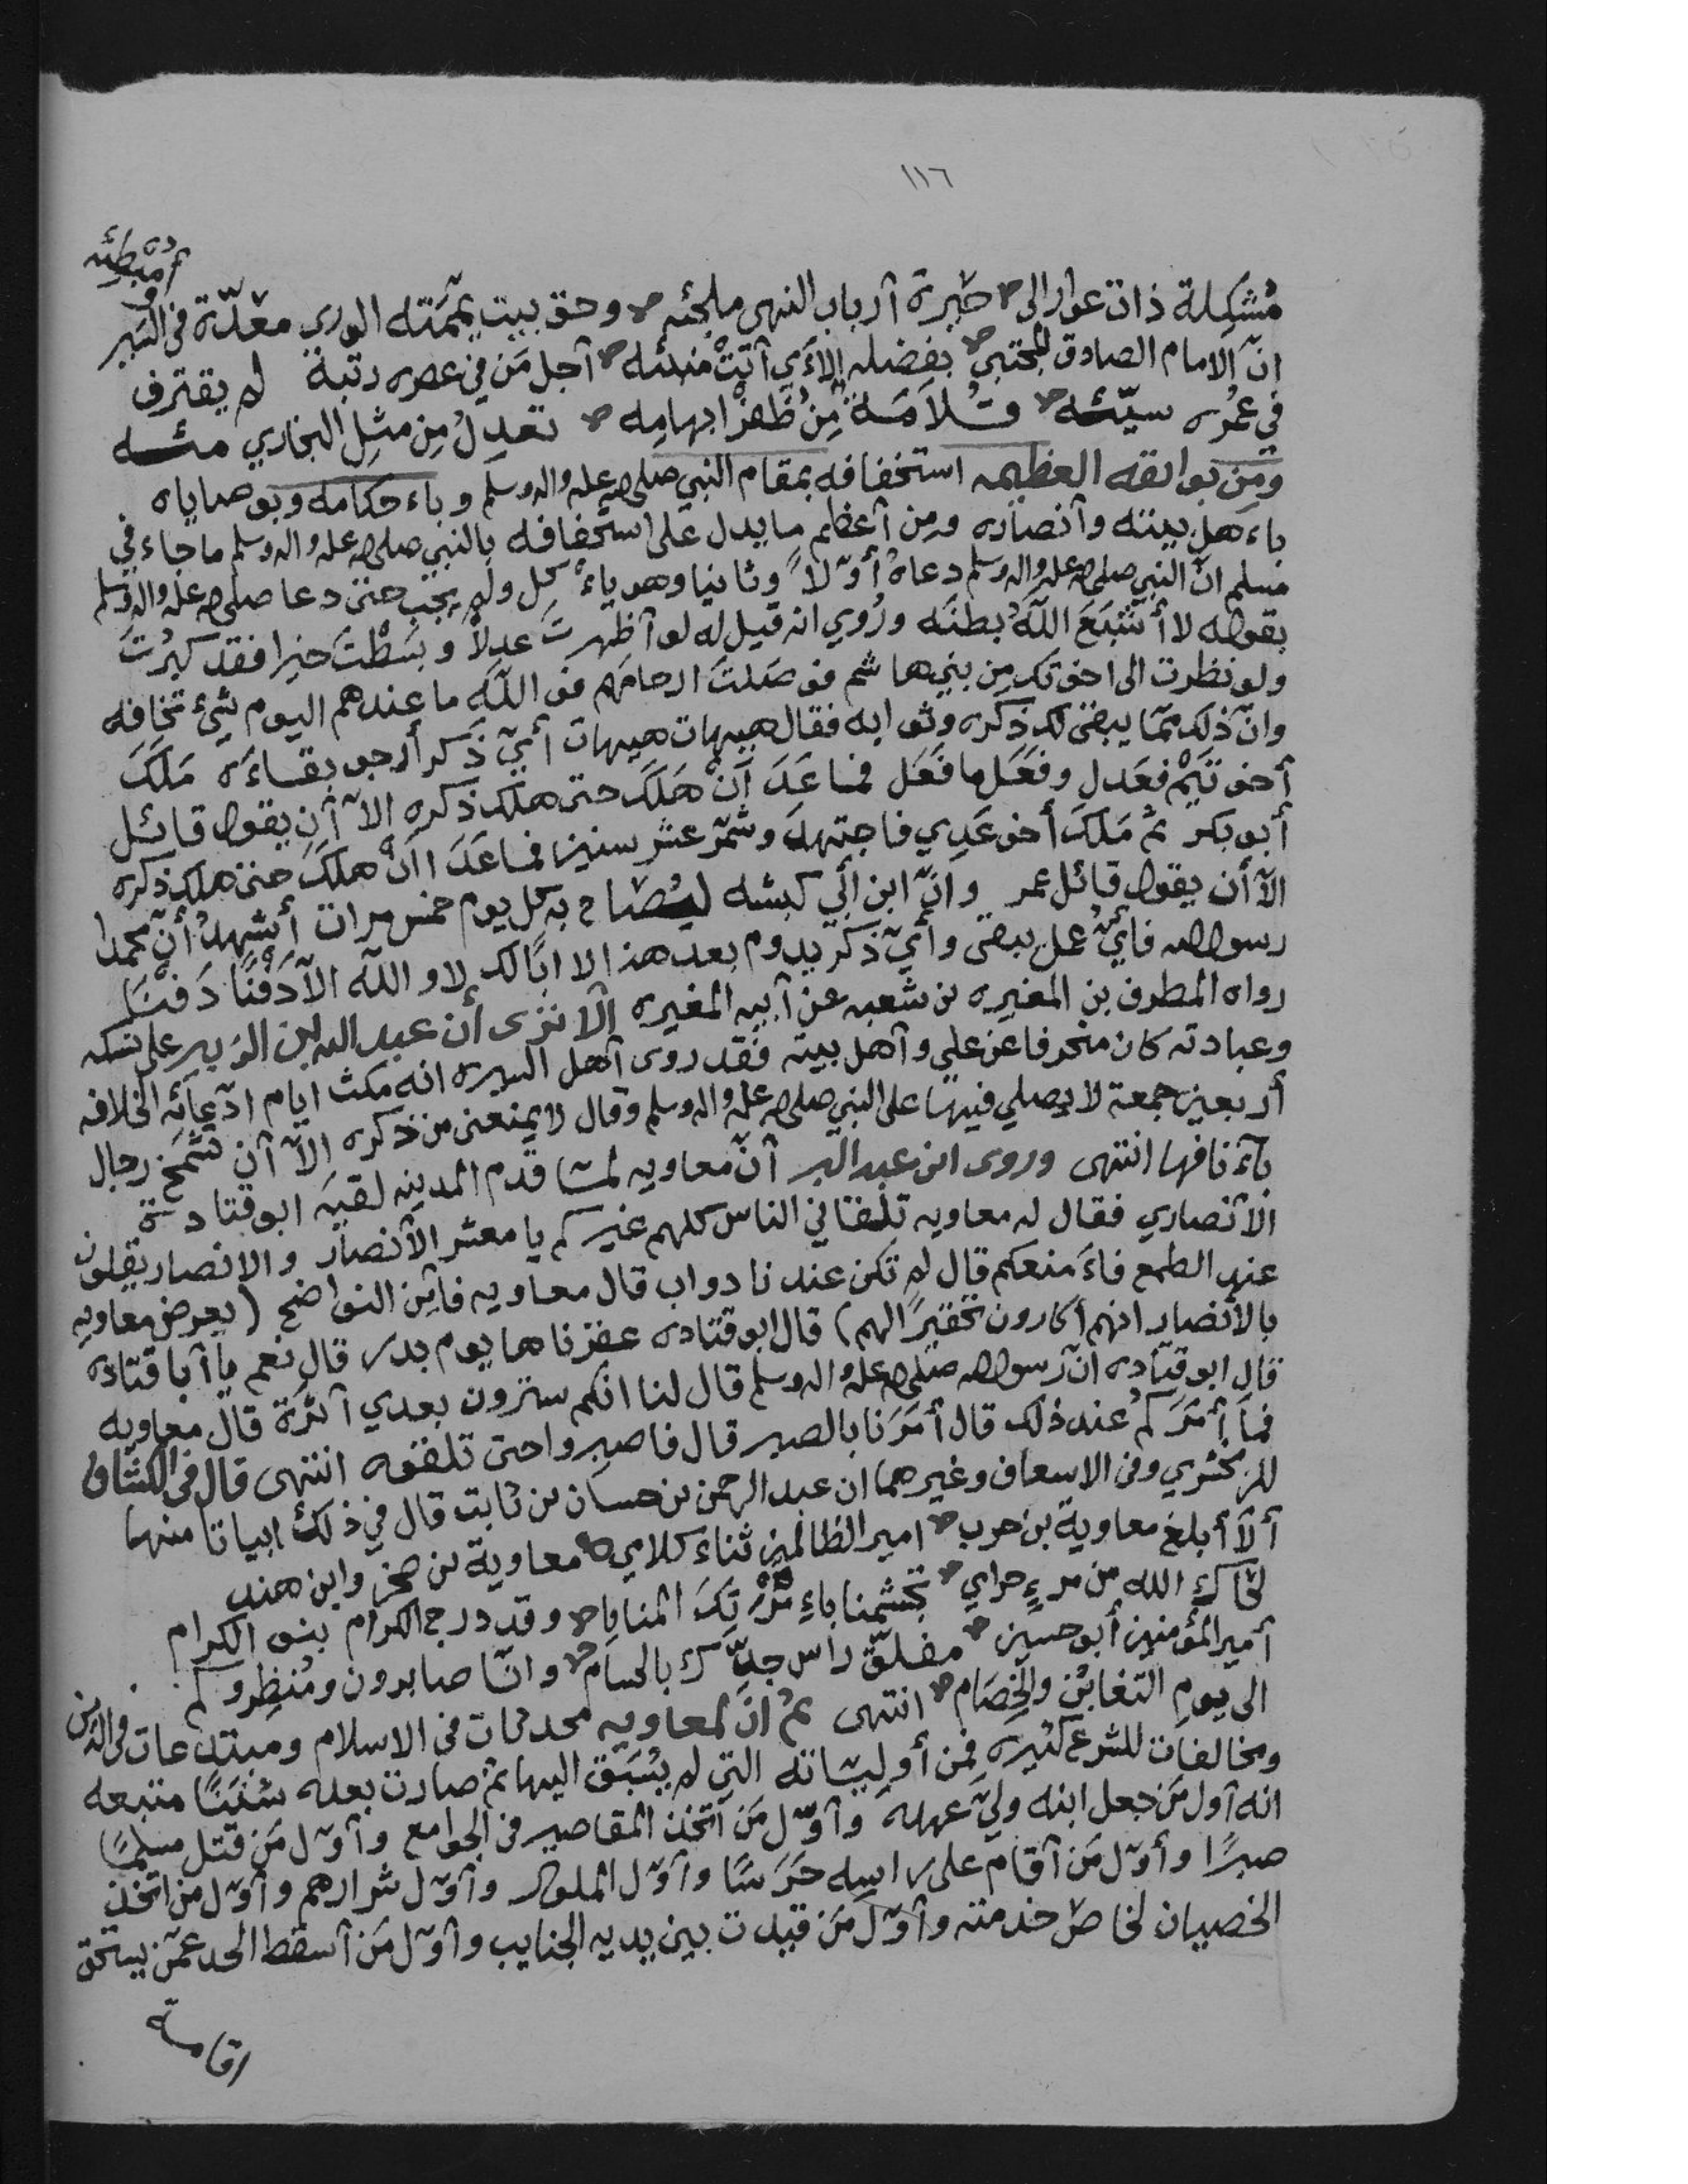 ١١٦
مُشكِلة ذات عوار إلى حَيرة أرباب النهى ملجئه وحق بيت يممته الورى مغذّة في السير أو مبطئه
انّ الامام الصادق المجتبى بفضله الآي أتت منبئه أجل مَن في عصره رتبة لم يقترف
في عمره سيّئه قُلامَة مِن ظفر ابهامه تعدل مِن مثل البخاري مئه
ومِن بوائقه العظيمه استخفافه بمقام النبي صلى الله عليه واله وسلم وباءحكامه وبوصاياه
باءهل بيته وأنصاره ومن أعظم ما يدل على استخفافه بالنبي صلى الله عليه واله وسلم ما جاء في
مسلم انّ النبي صلى الله عليه واله وسلم دعاه أوّلاً وثانيا وهو ياءكل ولم يجب حتى دعا صلى الله عليه واله وسلم
بقوله لا أشبَعَ اللهُ بطنَه ورُوي انه قيل له لو أظهرت عدلاً وبسطتَ خيرا فقد كبرُتَ
ولو نظرت الى اخوتك مِن بني هاشم فوصلتَ ارحامهم فو اللهِ ما عندهم اليوم شيء تخافه
وانّ ذلك ممّا يبقى لك ذكره وثوابه فقال هيهات هيهات أيّ ذكر أرجو بقاءَه مَلَكَ
أخو تَيْم فعَدل وفَعَل ما فَعَل فما عَدَ أنْ هَلَكَ حتى هلك ذكره الاّ أن يقول قائل
أبو بكر ثم مَلَكَ أخو عَدِي فاجتهدَ وشمّر عشر سنين فما عَدَا أنْ هلَكَ حتى هلك ذكره
الاّ أن يقول قائل عمر وانّ ابن أبي كبشه ليُصَاح به كل يوم خمس مرات أشهدُ أنّ محمدا
رسول الله فأيُّ عمل يبقى وأيّ ذكر يدوم بعد هذا لا ابًا لك لا والله الاّ دَفْنًا دَفْنًا
رواه المطرف بن المغيره بن شعبه عن أبيه المغيره ألا ترى أن عبد الله بن الزبير على نسكه
وعبادته كان منحرفا عن علي وأهل بيته فقد روى أهل السيره انه مكث ايام ادّعائه الخلافه
أربعين جمعة لا يصلي فيها على النبي صلى الله عليه واله وسلم وقال لا يمنعنى من ذكره الاّ أن تشمخ رجال
بآنافها انتهى وروى ابن عبد البر أنّ معاويه لمّا قدم المدينه لقيَه ابو قتادة
الأنصاري فقال له معاويه تلقاني الناس كلهم غيركم يا معشر الأنصار والانصار يقلون
عند الطمع فاءَ منعكم قال لم تكن عندنا دواب قال معاويه فأين النواضح (يعرض معاويه
بالأنصار انهم أكارون تحقيرًا لهم) قال ابو قتاده عقرناها يوم بدر قال نعم يا أبا قتاده
قال ابو قتاده انّ رسول الله صلى الله عليه واله وسلم قال لنا انكم سترون بعدي أثرَة قال معاويه
فما أمَرَكم عند ذلك قال أمَرَنا بالصبر قال فاصبروا حتى تلقوه انتهى قال في الكشاف
للزمخشري وفى الاسعاف وغيرهما ان عبد الرحمن بن حسان بن ثابت قال في ذلك ابياتا منها
ألا أبلغ معاوية بن حرب امير الظالمين ثناء كلامي معاوية بن صخر وابن هند
لحاك الله من مرءٍ حرامي تجشمنا باءِمْرَتِكَ المنايا وقد درج الكرام بنو الكرام
أمير المؤمنين أبو حسين مفلّق راس جدّك بالحسام وانّا صابرون ومُنظِروكم
الى يومِ التغابُن والخِصَام انتهى ثم انّ لمعاويه محدثات فى الاسلام ومبتدعات فى الدين
ومخالفات للشرع كثيره فمن أوليّاته التي لم يُسْبَق اليها ثم صارت بعده سُنَنًا متبعه
انه أول مَن جعل ابنه وليّ عهده وأوّل مَن اتخذ المقاصير في الجوامع وأوّل مَن قتل مسلمًا
صبرًا وأوّل مَن أقام على راسه حَرَسًا وأوّل الملوك وأوّل شرارهم وأوّل من اتخذ
الخصيان لخاصّ خدمته وأوّل مَن قيدت بين يديه الجنايب وأوّل مَن أسقط الحد عمّن يستحق
اقامة